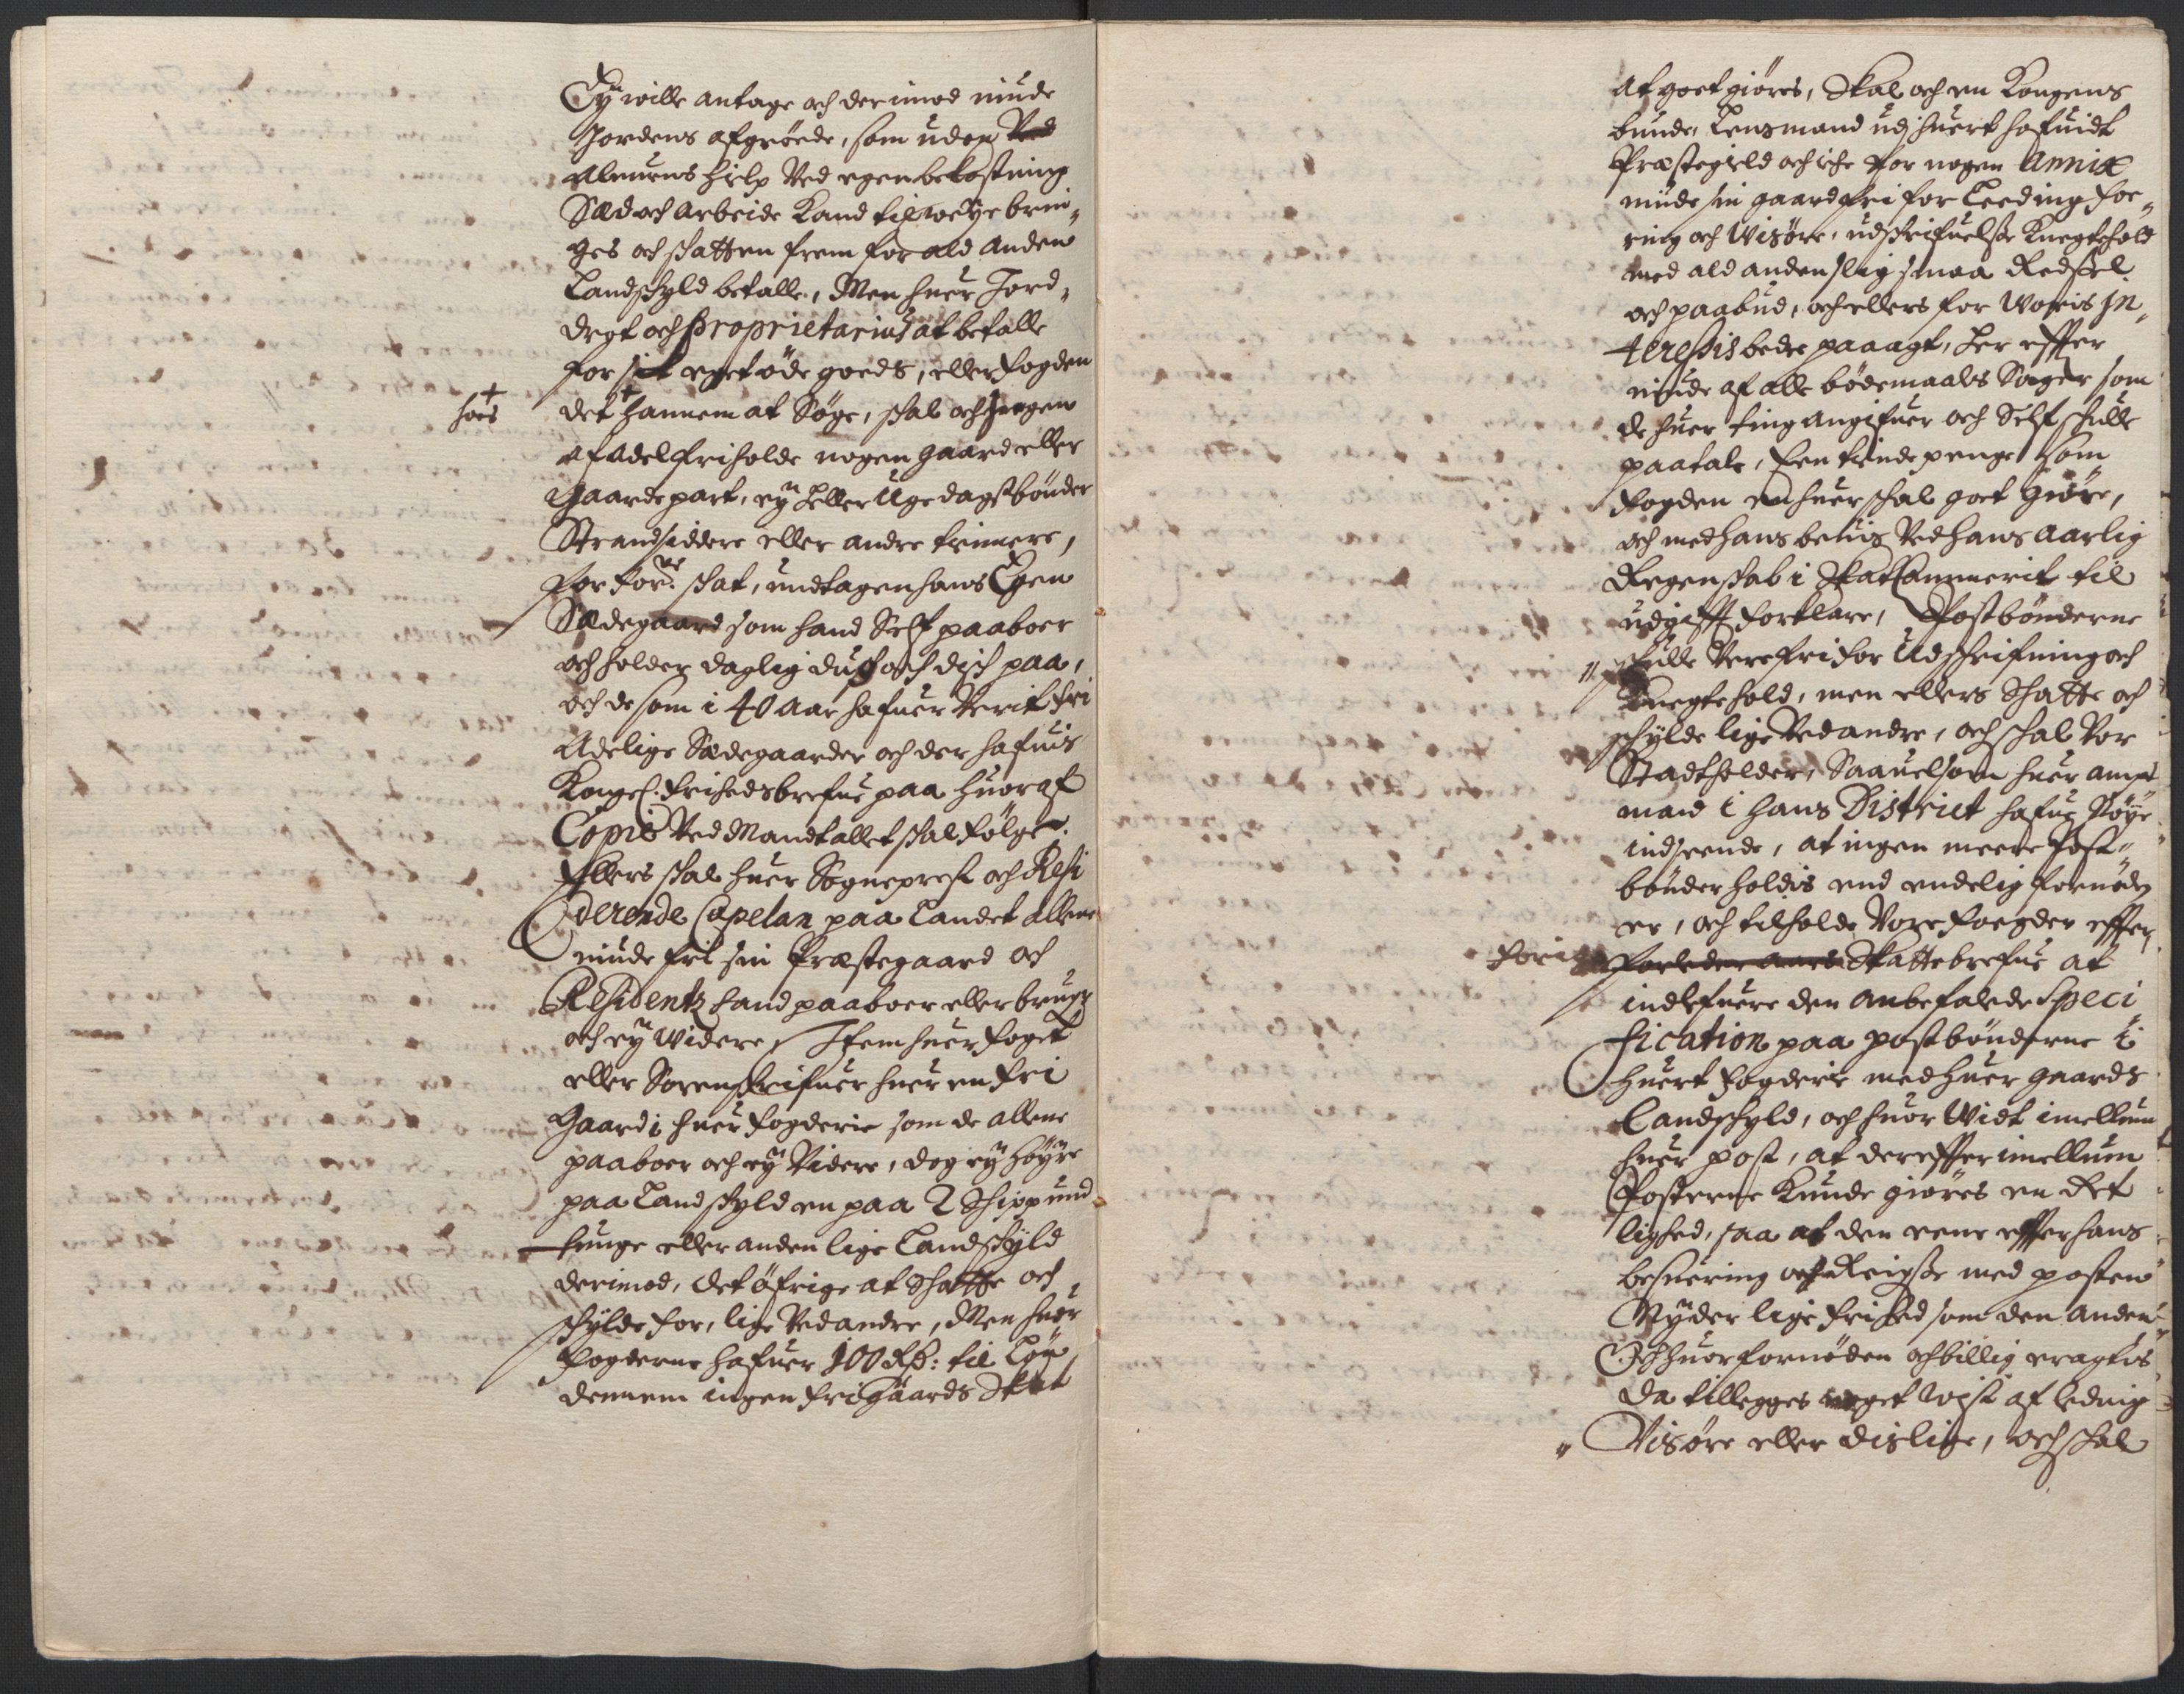 Ey wille antage och derimod niude
Jordens afgröede, som uden Ved
Almuens hielp Ved egen bekostning
Sæd och Arbeide Kand til weye brin-
ges och skatten frem for ald anden
Landskyld betalle, Men huer Jord-
drot och Proprietarius at betalle
for sit eget øde goeds, eller fogden
hoes
det hannem at Søge, skal och Ingen
af Adel friholde nogen gaard eller
gaardepart, ey heller Ugedagsbønder
Strandsiddere eller andre tienere,
for forne skat, undtagen hans Egen
Sædegaard som hand Self paaboer
och holder daglig dug och disk paa,
och de som i 40 Aar hafuer Verit fri
Adelige Sædegaarder och der hafuis
Kongel. frihedsbrefue paa huoraf
Copie Ved Mandtallet skal følge.
Ellers skal huer Sogneprest och Resi
derende Capelan paa Landet allene
niude frit sin Præstegaard och
Residentz hand paaboer eller bruger
och ey Widere, Item huer foget
eller Sorenskrifuer huer en fri
Gaard i huer fogderie som de allene
paaboer och ey Videre, dog ey høyre
paa Landskyld en paa 2 Skippund
tunge eller anden lige Landskyld
derimod, det öfrige at Skatte och
skylde for, lige Ved andre, Men huer
fogderne hafuer 100 Rd: til Løn
dennem ingen fri Gaards Skat
at goet giöres, Skal och en Kongens
bunde Lensmand udj huert hafuidt
Præstegield och iche for nogen Annix
niude sin gaard fri for Leeding foe-
ring och Wisøre, udskrifuelse Knegtehold
med ald anden slig smaa Redsel
och paabud, och ellers for Woris In-
teressis bedre paaagt, Her effter
niude af alle bödemaals Sager som
de huer ting angifuer och Self skulle
paatale, Een tiende penge som
fogden en huer skal goet Giøre,
och med hans beuis Ved hans Aarlig
Regenskab i Skat Cammerit til
udgifft forklare, Postbønderne
skulle Vere fri for Udskrifning och
Knegtehold, men ellers Skatte och
skylde lige Ved andre, och skal Vor
Stadtholder, Saauelsom huer ampt
mand i hans District hafue Nøye
indseende, at ingen meere Post-
bønder holdis end endelig fornøden
er, och tilholde Vore foegder effter
forige
forleden aars Skattebrefue at
indlefuere den anbefalede Speci
fication paa postbønderne i
huert fogderie med huer gaards
Landskyld, och huor Widt imellum
huer post, at dereffter imellum
Posterne Kunde giöres en Ret
lighed, saa at den eene effter hans
besuering och Reigse med posten
Nyder lige frihed som den anden
Och huor fornøden och billig eragtis
da tillegges noget Wist af leding
Visøre eller dislige, och skal